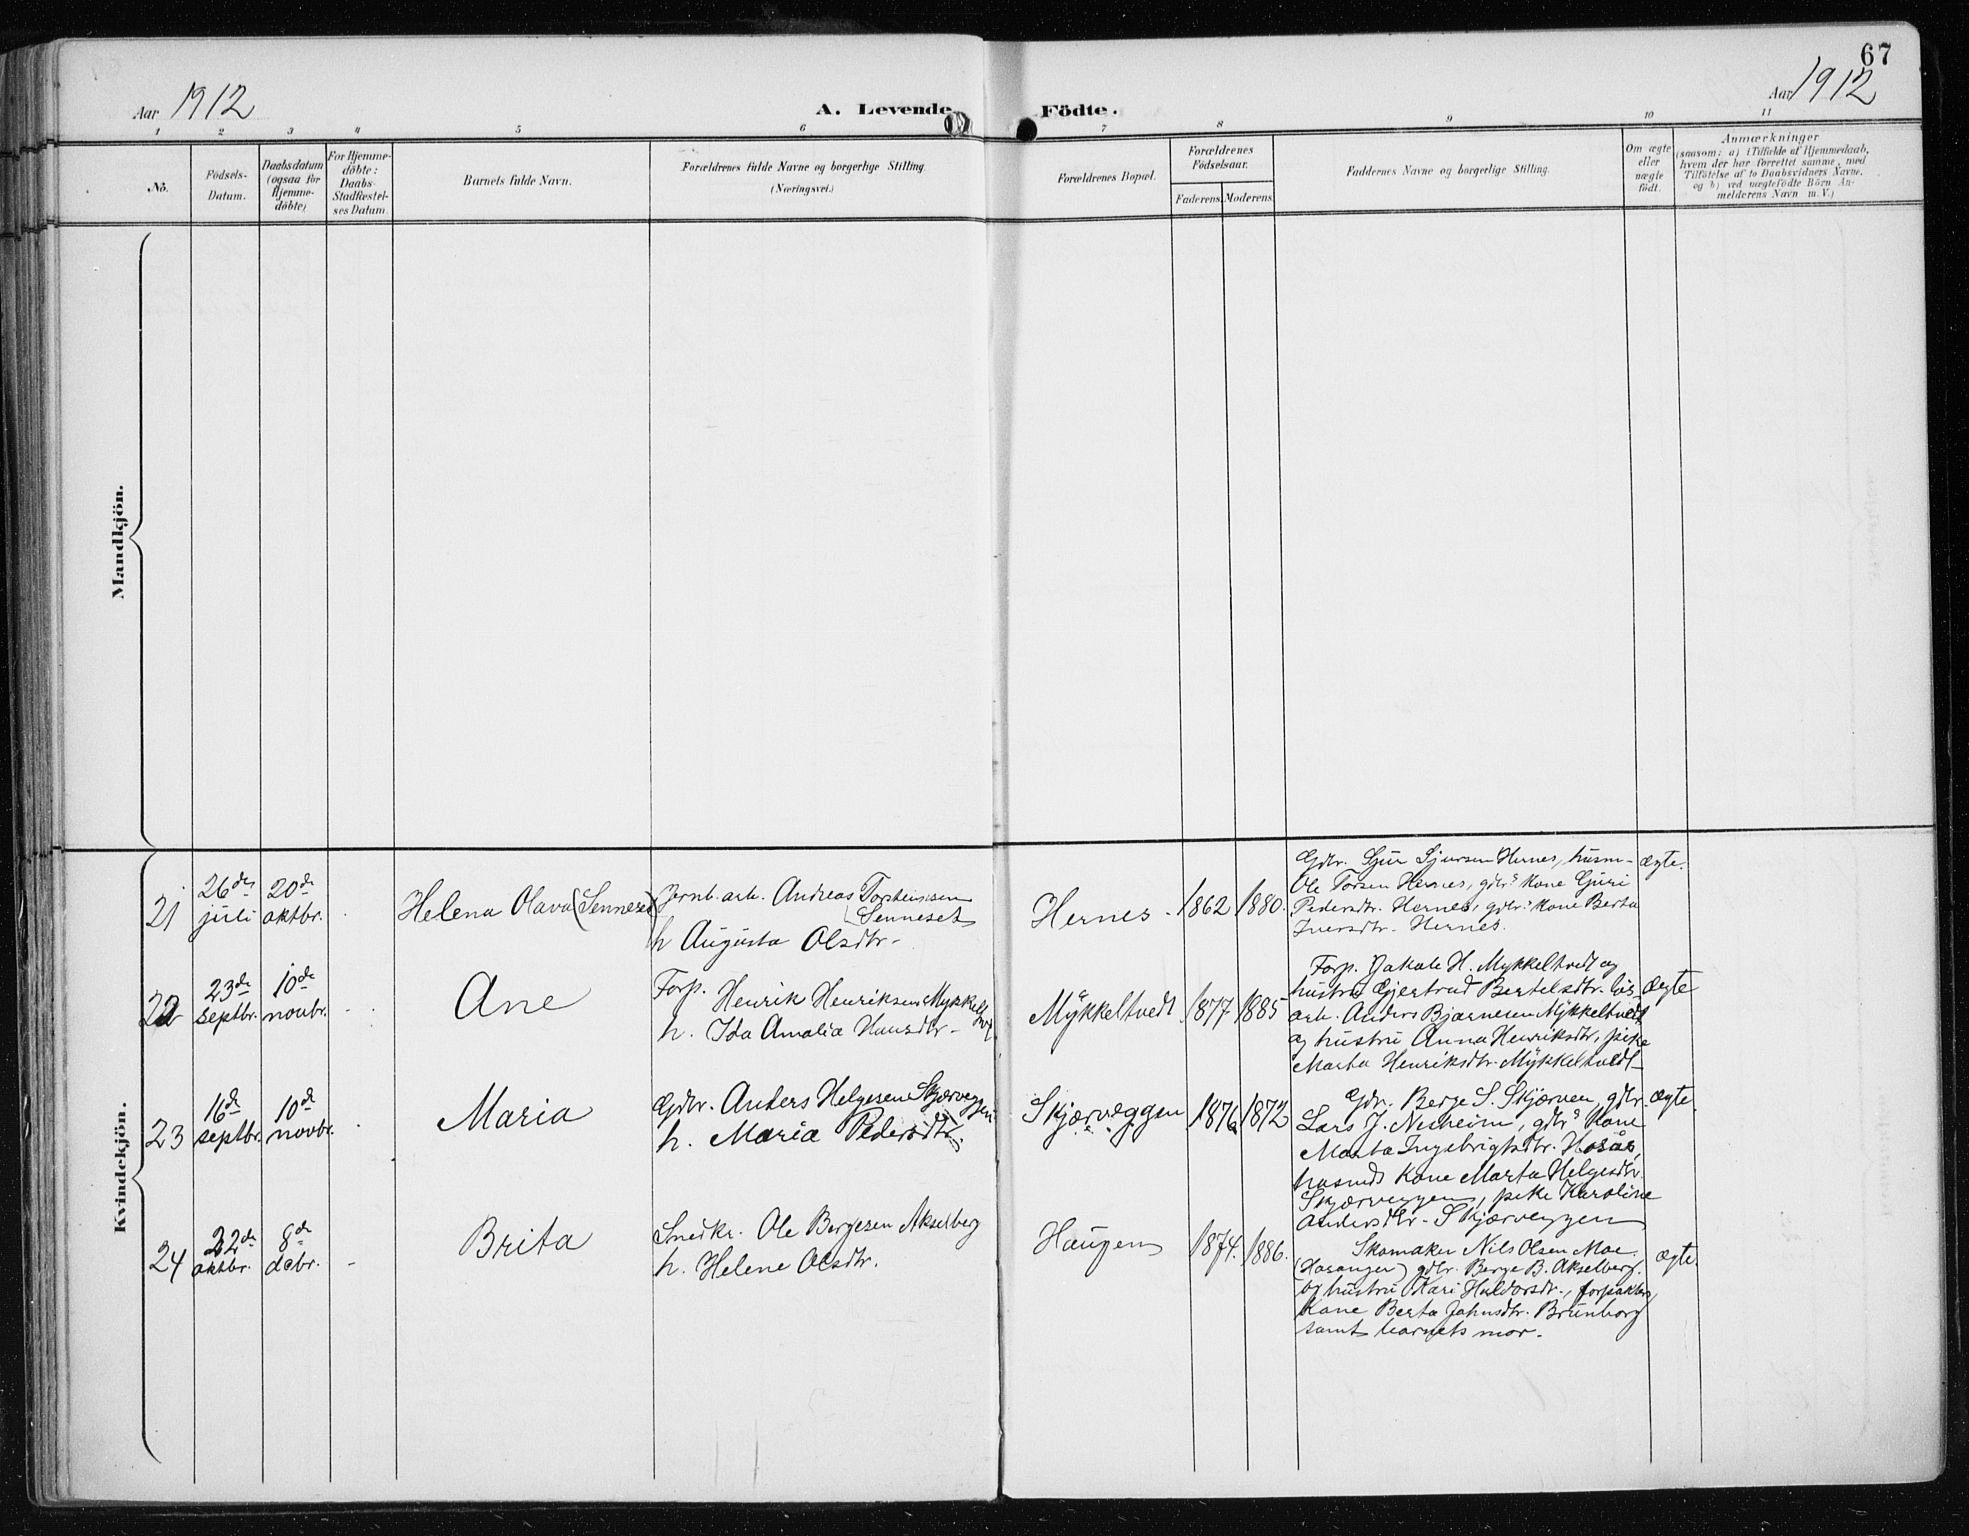 67
Aar 1912
A. Levende Födte.
Aar 1912
1 2 3 4 5 6 7 8 9 10 11
No.
Födsels-
Datum.
Daabsdatum
(ogsaa for
Hjemme-
døbte)
For Hjemme-
döbte:
Daabs-
Stadfæstel-
ses Datum.
Barnets fulde Navn.
Forældrenes fulde Navne og borgerlige Stilling.
(Næringsvei.)
Forældrenes Bopæl.
Forældrenes
Födselsaar.
Faderens. Moderens.
Faddernes Navne og borgerlige Stilling.
Om ægte
eller
uægte
födt.
Anmærkninger
(saasom: a) i Tilfælde af Hjemmedaab,
hvem der har forrettet samme, med
Tilföielse af to Daabsvidners Navne.
og b) ved uægtefödte Börn An-
melderens Navn m. V.)
Mandkjön.
Kvindekjön.
21
26de
juli
20de
oktbr.
Helena Olava (Senneset)
Jernb. arb. Andreas Torsteinsen
Senneset
h Augusta Olsdtr.
Hernes.
1862
1880.
Gdbr. Sjur Sjursen Hernes, husm-
Ole Torsen Hernes, gdbrs kone Guri
Pedersdtr. Hernes, gdbrs kone Berta
Iversdtr. Hernes.
ægte.
22
23de
septbr.
10de
novbr.
Ane
Forp. Henrik Henriksen Mykkeltvedt
h. Ida Amalia Hansdtr.
Mykkeltvedt
1877
1885
Forp. Jakob H. Mykkeltvedt og
hustru Gjertrud Bertelsdtr.
arb. Anders Bjarnesen Mykkeltvedt
og hustru Anna Henriksdtr, pike
Marta Henriksdtr. Mykkeltvedt
ægte
23
16de
septbr.
10de
novbr.
Maria
Gdbr. Anders Helgesen Skjærveggen
h. Maria Pedersdtr.
Skjærveggen
1876
1872
Gdr. Berge S. Skjerven, gdbr.
Lars J. Nesheim, gdbrs kone
Marta Ingebrigtsdtr.
husmds kone Marta Helgesdtr
Skjærveggen, pike Karoline
Andersdtr. Skjærveggen
ægte.
24
22de
oktbr.
8de
decbr.
Brita
Snedkr. Ole Bergesen Akselberg
h. Helene Olsdtr.
Haugen
1874.
1886.
Skomaker Nils Olsen Moe.
gdbr. Berge B. Akselberg.
og hustru Kari Haldorsdtr., forpakters
kone Berta Johnsdtr. Brunborg
samt barnets mor.
ægte.